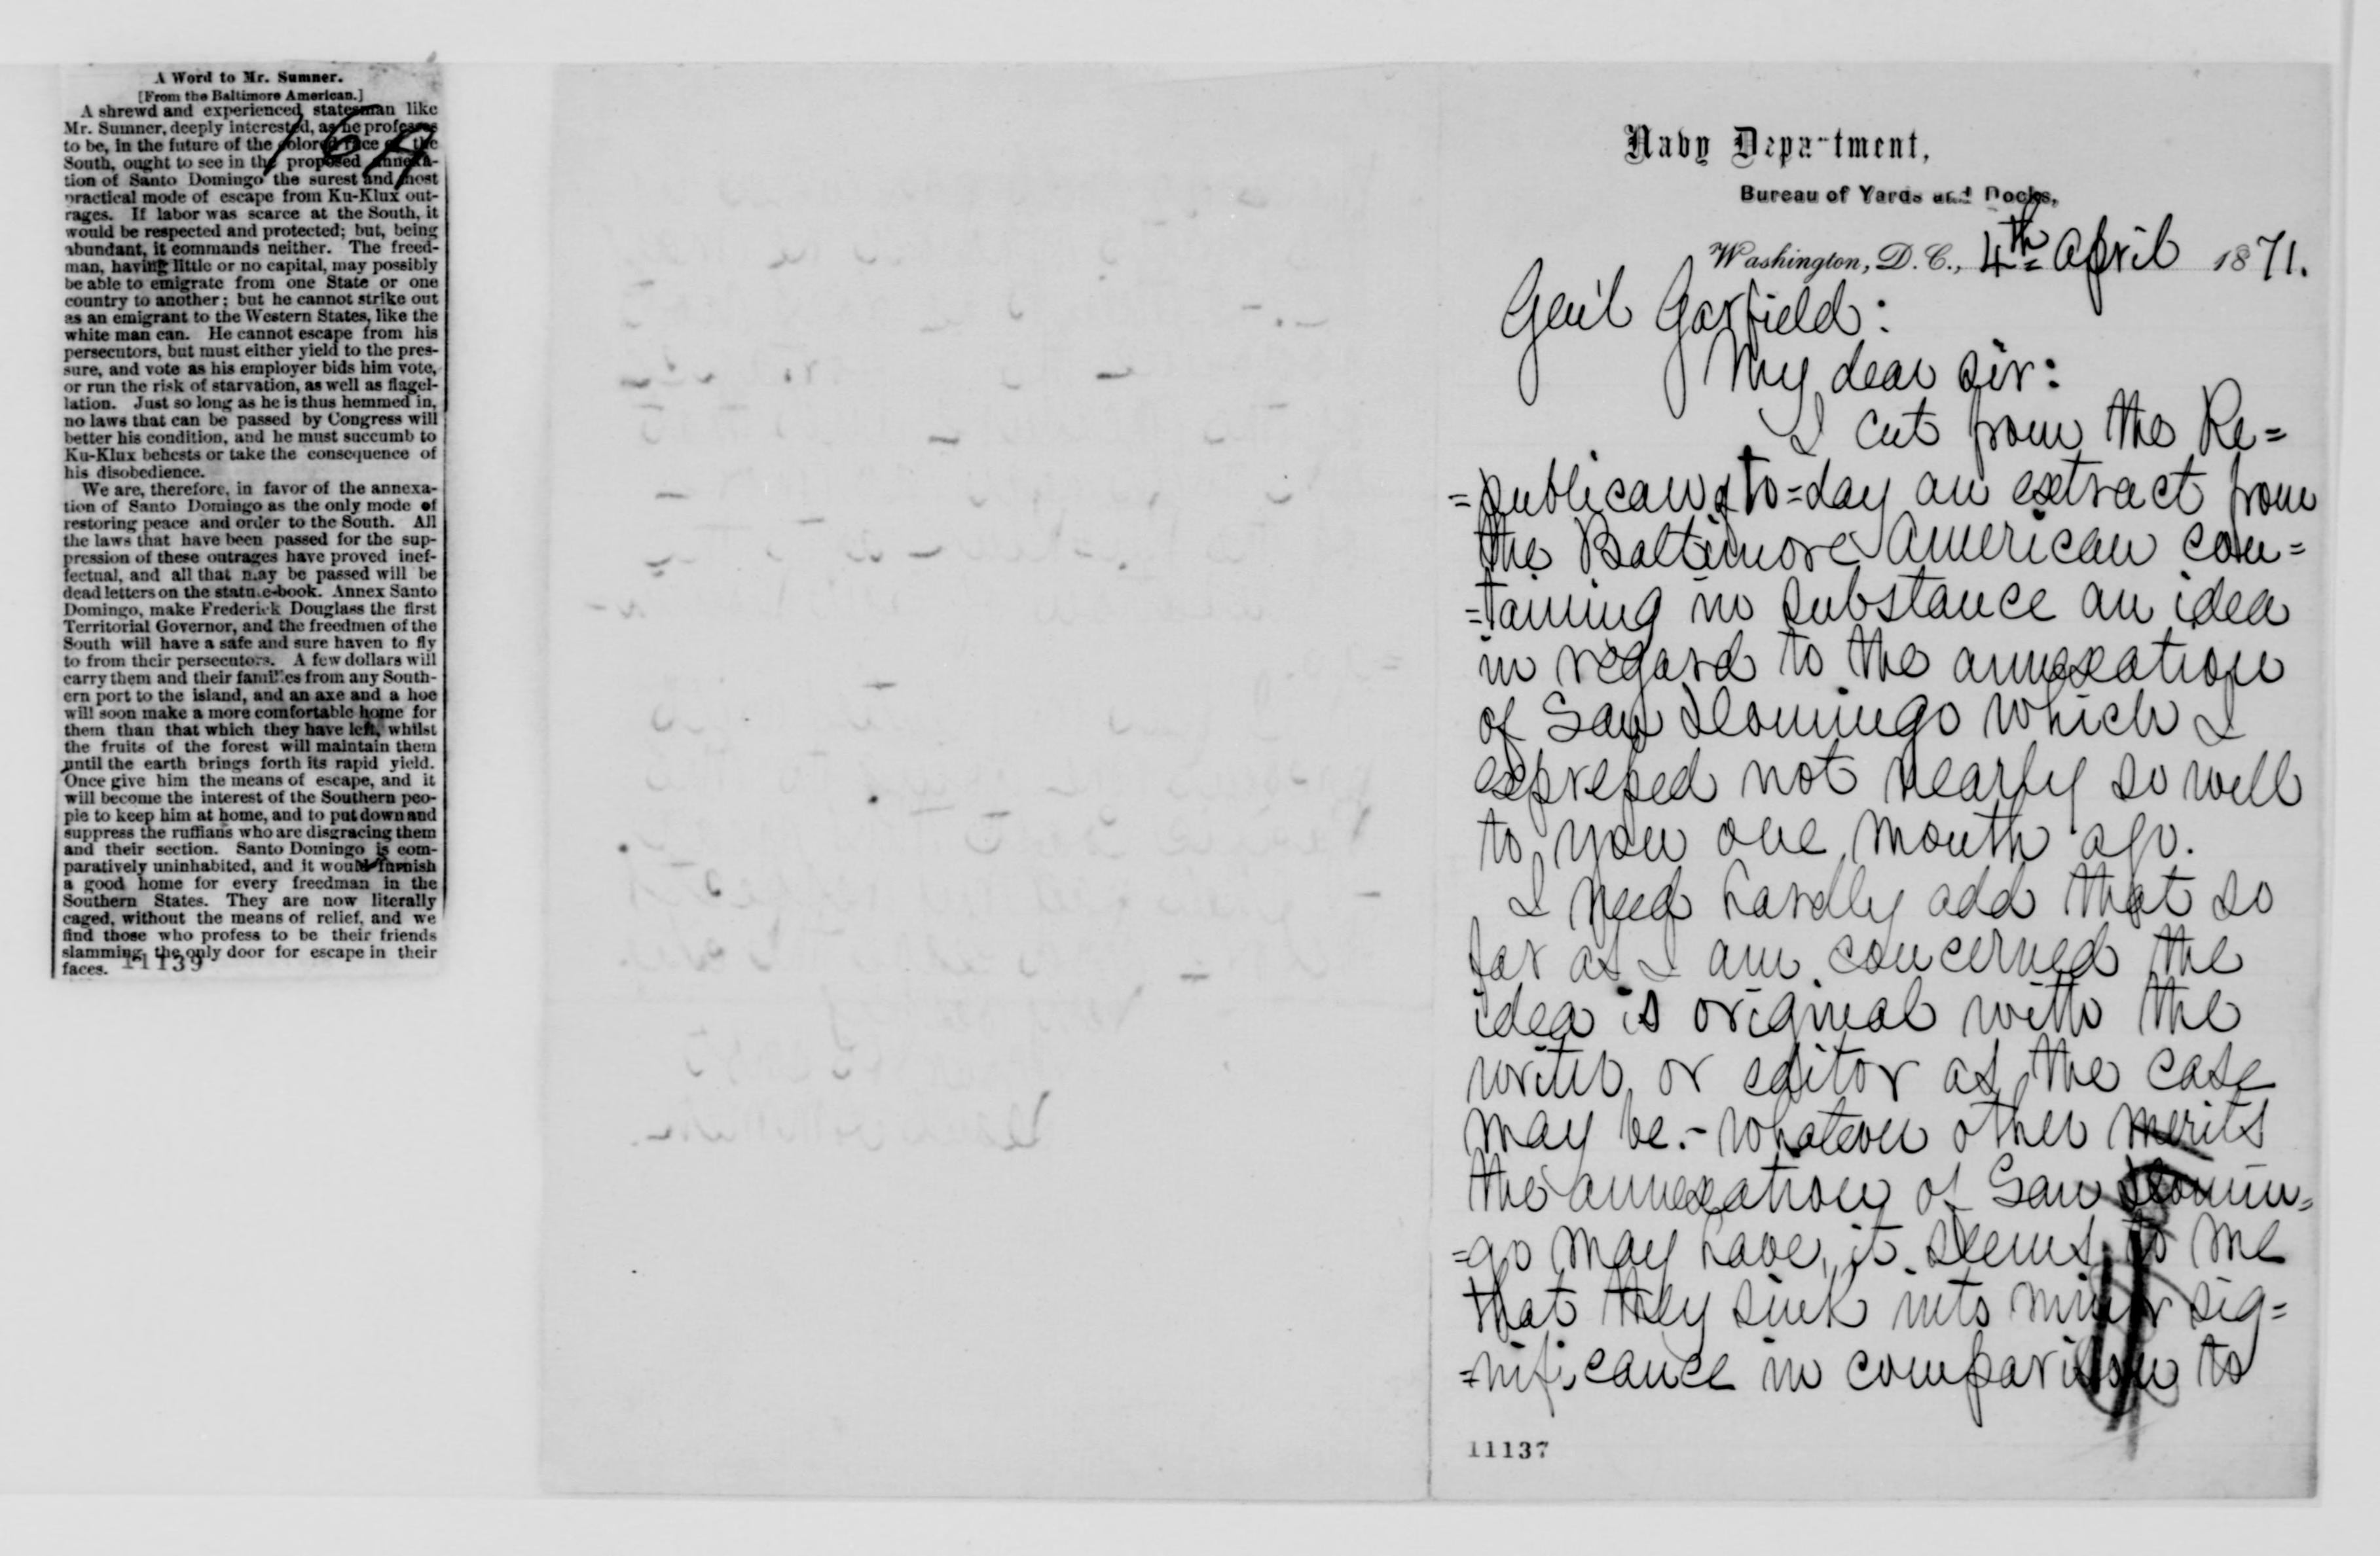 A Word to Mr. Sumner.
[From the Baltimore American.]
A shrewd and experienced statesman like
Mr. Sumner, deeply interested, as he professes
to be, in the future of the colored race of the
South, ought to see in the proposed annexa-
tion of Santo Domingo the surest and most
practical mode of escape from Ku-Klux out-
rages. If labor was scarce at the South, it
would be respected and protected; but, being
abundant, it commands neither. The freed-
man, having little or no capital, may possibly
be able to emigrate from one State or one
country to another; but he cannot strike out
as an emigrant to the Western States, like the
white man can. He cannot escape from his
persecutors, but must either yield to the pres-
sure, and vote as his employer bids him vote,
or run the risk of starvation, as well as flagel-
lation. Just so long as he is thus hemmed in,
no laws that can be passed by Congress will
better his condition, and he must succumb to
Ku-Klux behests or take the consequence of
his disobedience.
We are, therefore, in favor of the annexa-
tion of Santo Domingo as the only mode of
restoring peace and order to the South. All
the laws that have been passed for the sup-
pression of these outrages have proved inef-
fectual, and all that may be passed will be
dead letters on the statute-book. Annex Santo
Domingo, make Frederick Douglass the first
Territorial Governor, and the freedmen of the
South will have a safe and sure haven to fly
to from their persecutors. A few dollars will
carry them and their families from any South-
ern port to the island, and an axe and a hoe
will soon make a more comfortable home for
them than that which they have left, whilst
the fruits of the forest will maintain them
until the earth brings forth its rapid yield.
Once give him the means of escape, and it
will become the interest of the Southern peo-
ple to keep him at home, and to put down and
suppress the ruffians who are disgracing them
and their section. Santo Domingo is com-
paratively uninhabited, and it would furnish
a good home for every freedman in the
Southern States. They are now literally
caged, without the means of relief, and we
find those who profess to be their friends
slamming the only door for escape in their
faces.
11139
169
Navy Department,
Bureau of Yards and Docks,
Washington, D.C., 4th April 1871.
Gen'l Garfield:
My dear Sir:
I cut from the Re=
=publican of to=day an extract from
the Baltimore American con=
=taining in substance an idea
in regard to the annexation
of San Domingo which I
expressed not nearly so well
to you one month ago.
I need hardly add that so
far as I am concerned the
idea is original with the
writer or editor as the case
may be.- Whatever other merits
the annexation of San Domin=
=go may have, it seems to me
that they sink into minor sig=
=nificance in comparison to
11137